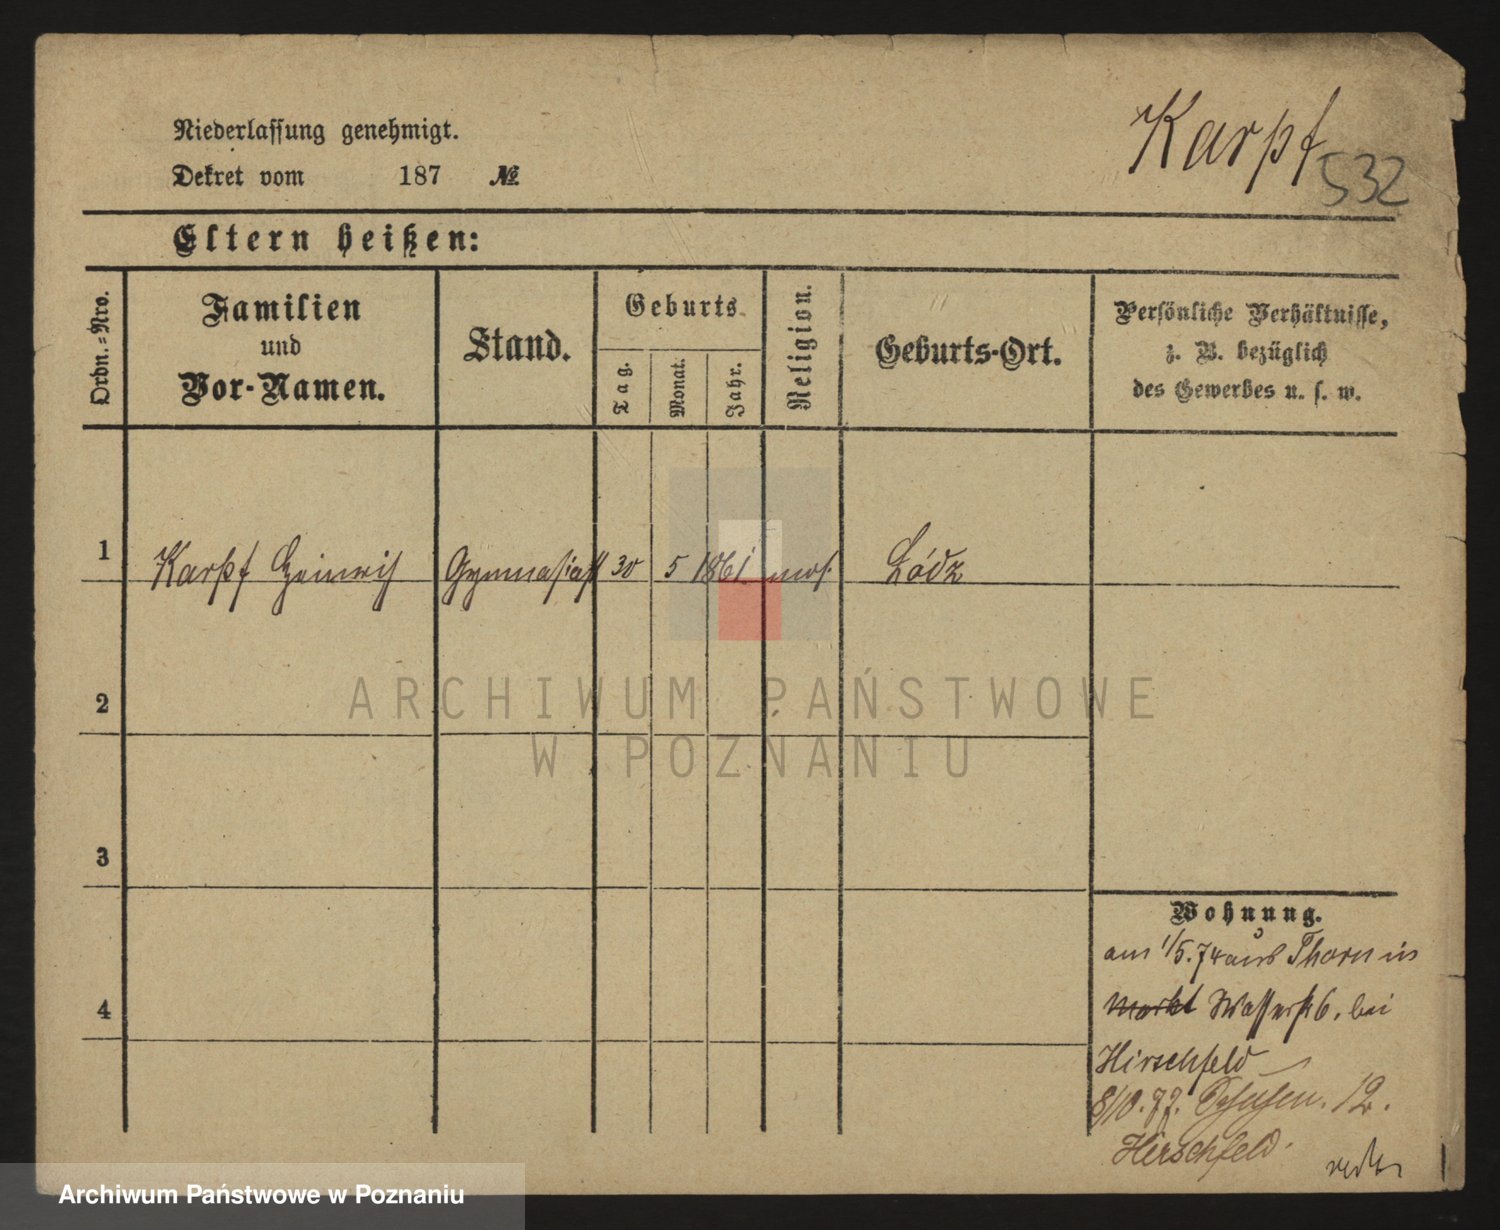 Karpf
532
Niederlassung genehmigt.
Dekret vom 187 №
Eltern heißen:
Ordn.-Nro.
Familien
und
Vor-Namen.
Stand.
Geburts
Tag.
Monat.
Jahr.
Religion.
Geburts-Ort.
Persönliche Verhältnisse,
z. B. bezüglich
des Gewerbes u. s. w.
1 Karpf Heinrich Gymnasiast 30 5 1861 mos. Łódz
2
3
4
ARCHIWUM PAŃSTWOWE
W POZNANIU
Wohnung.
am 1/5. 74 aus Thorn in
Markt Wasserst 6. bei
Hirschfeld
8/10. 77. 12.
Hirschfeld.
Archiwum Państwowe w Poznaniu